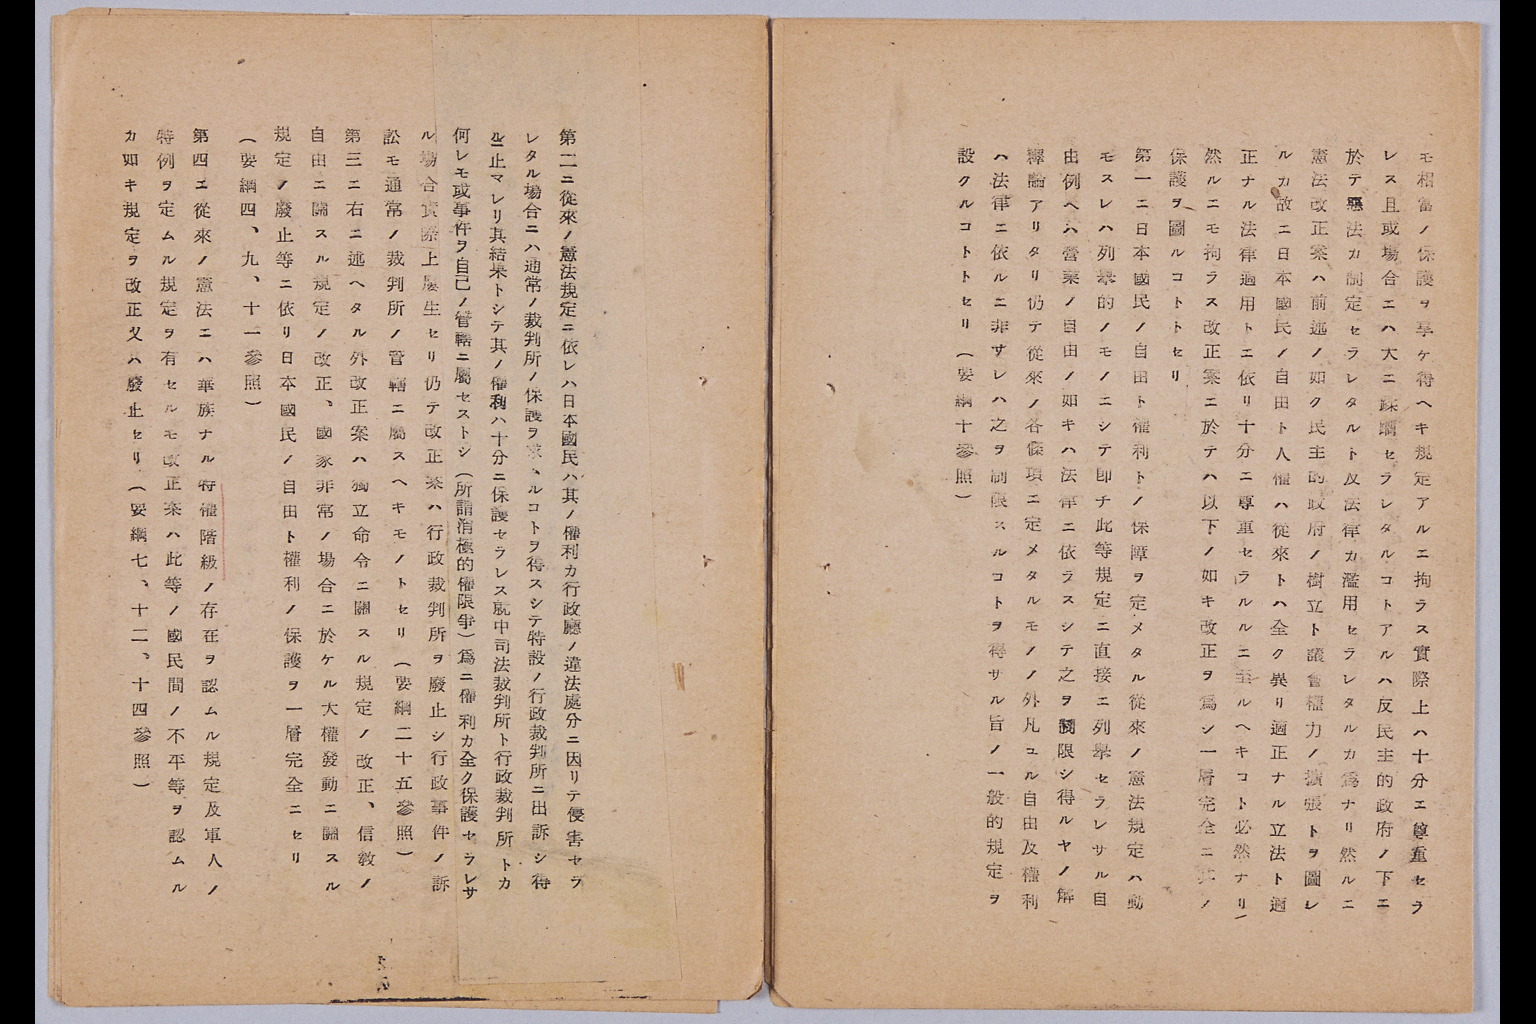 モ相當ノ保護ヲ享ケ得ヘキ規定アルニ拘ラス實際上ハ十分ニ尊重セラ
レス且或場合ニハ大ニ蹂躙セラレタルコトアルハ反民主的政府ノ下ニ
於テ惡法カ制定セラレタルト又法律カ濫用セラレタルカ爲ナリ然ルニ
憲法改正案ハ前述ノ如ク民主的政府ノ樹立ト議會權力ノ擴張トヲ圖レ
ルカ故ニ日本國民ノ自由ト人權ハ從來トハ全ク異リ適正ナル立法ト適
正ナル法律適用トニ依リ十分ニ尊重セラルルニ至ルヘキコト必然ナリ
然ルニモ拘ラス改正案ニ於テハ以下ノ如キ改正ヲ爲シ一層完全ニ其ノ
保護ヲ圖ルコトトセリ
第一ニ日本國民ノ自由ト權利トノ保障ヲ定メタル從來ノ憲法規定ハ動
モスレハ列擧的ノモノニシテ卽チ此等規定ニ直接ニ列擧セラレサル自
由例ヘハ營業ノ自由ノ如キハ法律ニ依ラスシテ之ヲ制限シ得ルヤノ解
釋論アリタリ仍テ從來ノ各條項ニ定メタルモノノ外凡ユル自由及權利
ハ法律ニ依ルニ非サレハ之ヲ制限スルコトヲ得サル旨ノ一般的規定ヲ
設クルコトトセリ(要綱十參照)
第二ニ從來ノ憲法規定ニ依レハ日本國民ハ其ノ權利カ行政廳ノ違法處分ニ因リテ侵害セラ
レタル場合ニハ通常ノ裁判所ノ保護ヲ求ムルコトヲ得スシテ特設ノ行政裁判所ニ出訴シ得
ルニ止マレリ其結果トシテ其ノ權利ハ十分ニ保護セラレス就中司法裁判所ト行政裁判所トカ
何レモ或事件ヲ自己ノ管轄ニ屬セストシ(所謂消極的權限爭)爲ニ權利カ全ク保護セラレサ
ル場合實際上屢生セリ仍テ改正案ハ行政裁判所ヲ廢止シ行政事件ノ訴
訟モ通常ノ裁判所ノ管轄ニ屬スヘキモノトセリ(要綱二十五參照)
第三ニ右ニ述ヘタル外改正案ハ獨立命令ニ關スル規定ノ改正、信敎ノ
自由ニ關スル規定ノ改正、國家非常ノ場合ニ於ケル大權發動ニ關スル
規定ノ廢止等ニ依リ日本國民ノ自由ト權利ノ保護ヲ一層完全ニセリ
(要綱四、九、十一參照)
第四ニ從來ノ憲法ニハ華族ナル特權階級ノ存在ヲ認ムル規定及軍人ノ
特例ヲ定ムル規定ヲ有セルモ改正案ハ此等ノ國民間ノ不平等ヲ認ムル
カ如キ規定ヲ改正又ハ廢止セリ(要綱七、十二、十四參照)